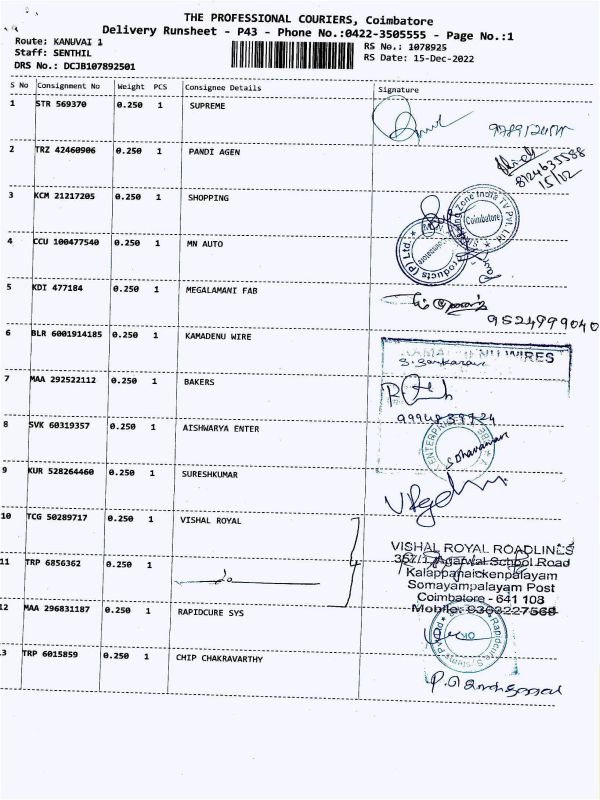 THE PROFESSIONAL COURIERS, Coimbatore
Delivery Runsheet - P43 - Phone No.:0422-3505555 - Page No.:1
Route: KANUVAI 1
RS No.: 1078925
Staff: SENTHIL
RS Date: 15-Dec-2022
DRS No.: DCJB107892501
S No Consignment No Weight PCS Consignee Details Signature
1 STR 569370 0.250 1 SUPREME
2 TRZ 42460906 0.250 1 PANDI AGEN
8124635588
15/12
3 KCM 21217205 0.250 1 SHOPPING
Coimbatore
4 CCU 100477540 0.250 1 MN AUTO
Products (P) Ltd.
5 KDI 477184 0.250 1 MEGALAMANI FAB
9524999040
6 BLR 6001914185 0.250 1 KAMADENU WIRE
WIRES
S. Sankaran
7 MAA 292522112 0.250 1 BAKERS
8 SVK 60319357 0.250 1 AISHWARYA ENTER
ENTERPRISE
9 KUR 528264460 0.250 1 SURESHKUMAR
10 TCG 50289717 0.250 1 VISHAL ROYAL
VISHAL ROYAL ROADLINES
11 TRP 6856362 0.250 1
357/1 Agarwal School Road
Kalappanaickenpalayam
Somayampalayam Post
Coimbatore - 641 108
Mobile: 9363227568
12 MAA 296831187 0.250 1 RAPIDCURE SYS
Rapidcure Systems Pvt Ltd
13 TRP 6015859 0.250 1 CHIP CHAKRAVARTHY